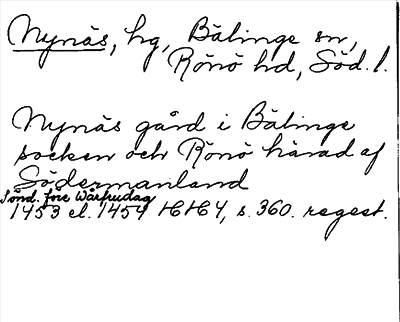 Nynäs, hg, Bälinge sn,
Rönö hd, Söd. l.
Nynäs gård i Bälinge
socken och Rönö härad af
Södermanland
Sönd. före Wårfrudag
1453 el. 1454 HH4, s. 360. regest.